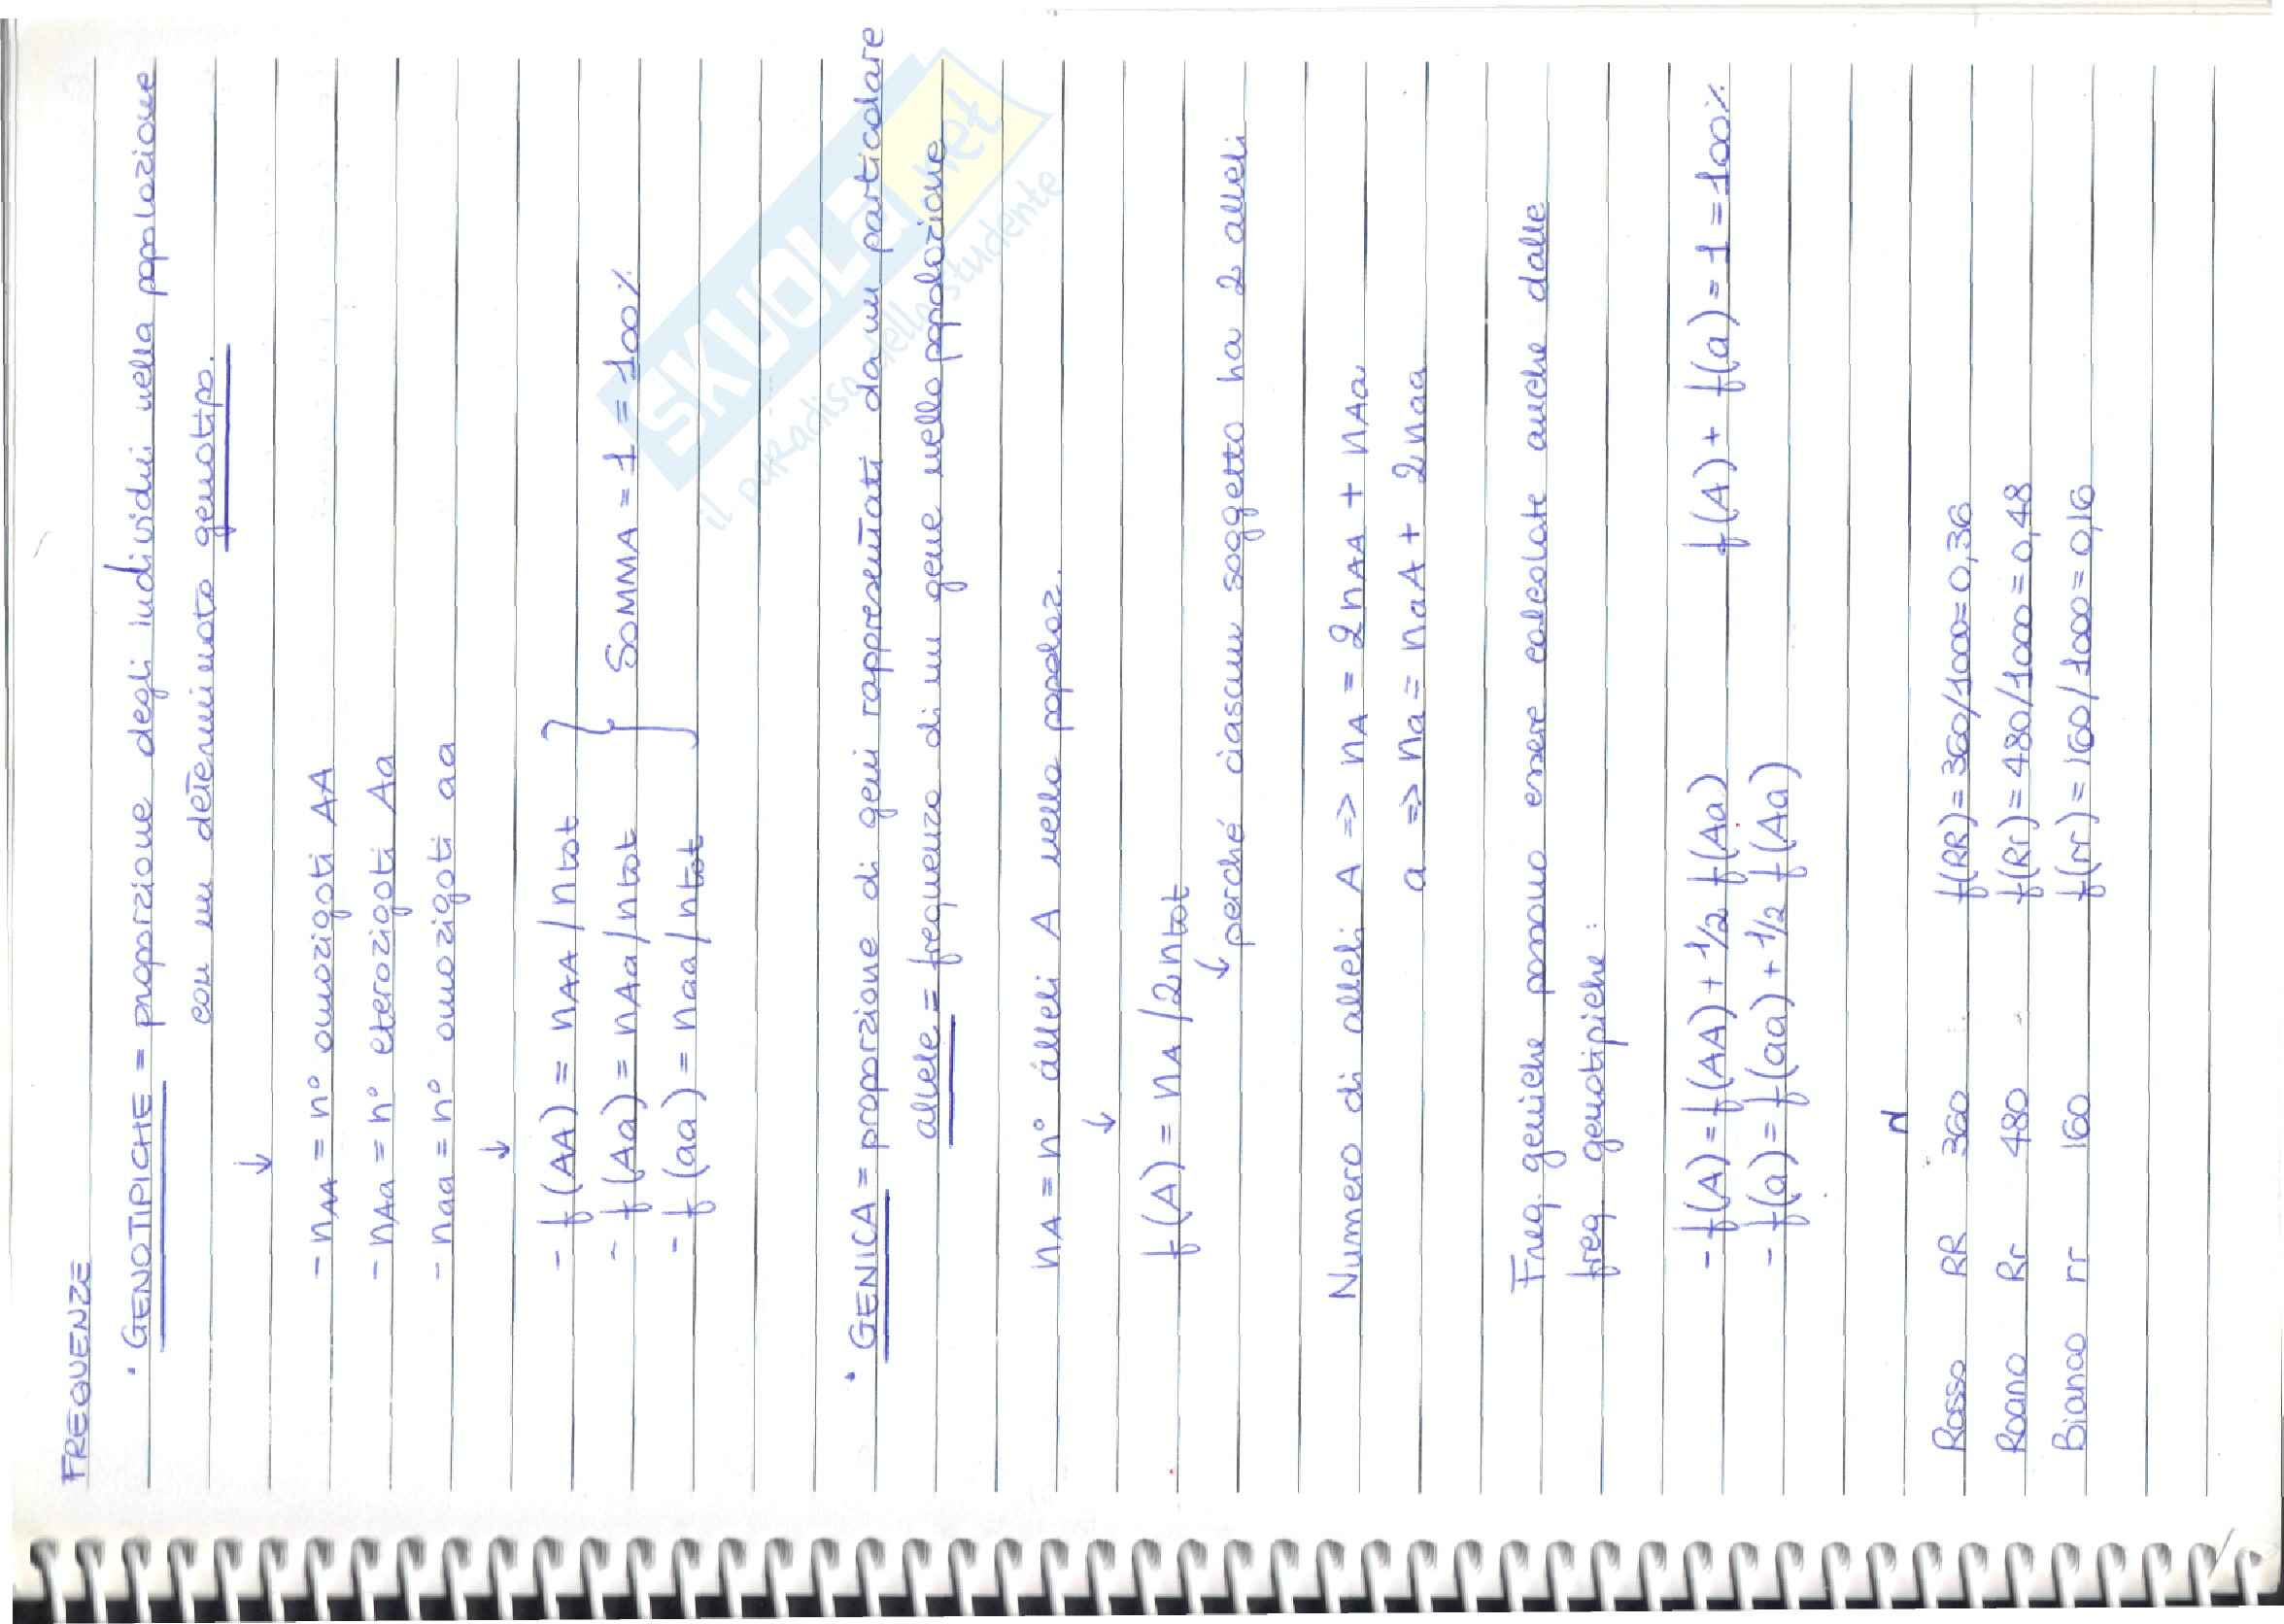 FREQUENZE
· GENOTIPICHE = proporzione degli individui nella popolazione
con un determinato genotipo.
↓
- nAA = n° omozigoti AA
- nAa = n° eterozigoti Aa
- naa = n° omozigoti aa
↓
- f(AA) = nAA / ntot
- f(Aa) = nAa / ntot } SOMMA = 1 = 100%
- f(aa) = naa / ntot
· GENICA = proporzione di geni rappresentati da un particolare
allele = frequenza di un gene nella popolazione
nA = n° alleli A nella popolaz.
↓
f(A) = nA / 2ntot
↓ perché ciascun soggetto ha 2 alleli
Numero di alleli A => nA = 2nAA + nAa
a => na = naA + 2naa
Freq. geniche possono essere calcolate anche dalle
freq. genotipiche:
- f(A) = f(AA) + 1/2 f(Aa) f(A) + f(a) = 1 = 100%
- f(a) = f(aa) + 1/2 f(Aa)
N
Rosso RR 360 f(RR) = 360/1000 = 0,36
Roano Rr 480 f(Rr) = 480/1000 = 0,48
Bianco rr 160 f(rr) = 160/1000 = 0,16
SKUOLA.net
il paradiso dello studente